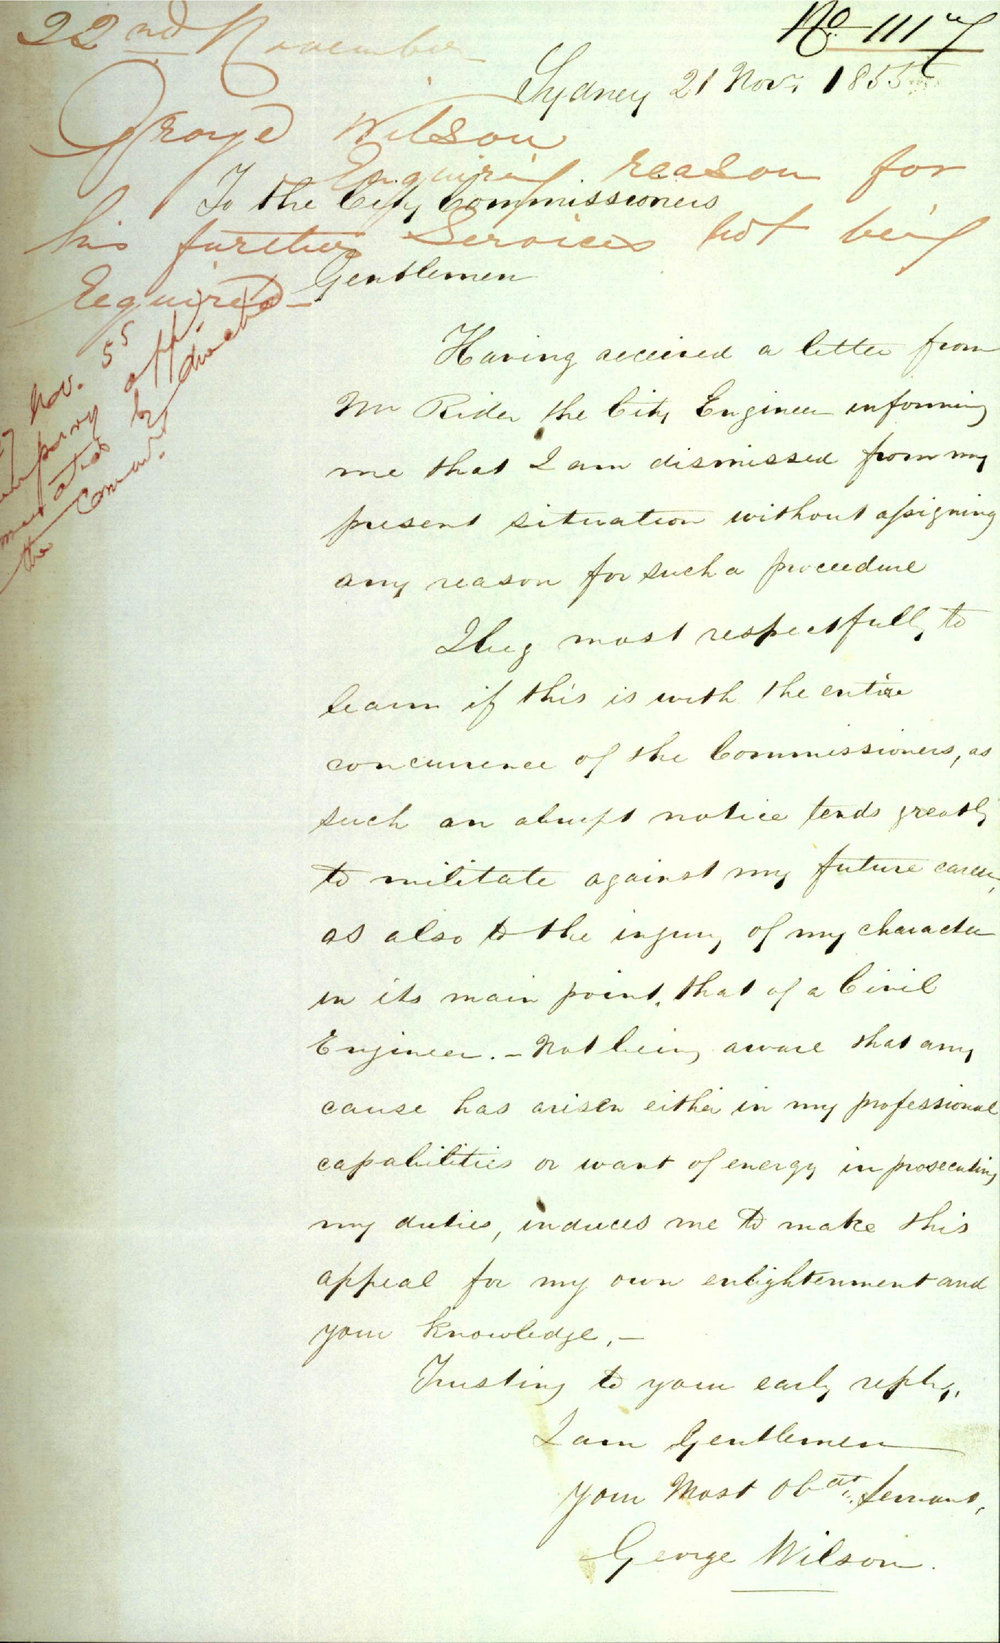 No 1117
22nd November
Sydney 21 Nov. 1855
George Wilson
Enquiring reason for
To the City Commissioners
his further Services not being
Gentlemen
Required —
Nov. 55
directed
by
the
Having received a letter from
Mr Rider the City Engineer informing
me that I am dismissed from my
present situation without assigning
any reason for such a proceedure
I beg most respectfully to
learn if this is with the entire
concurrence of the Commissioners, as
such an abrupt notice tends greatly
to militate against my future career,
as also to the injury of my character
in its main point, that of a Civil
Engineer. – Not being aware that any
cause has arisen either in my professional
capabilities or want of energy in prosecuting
my duties, induces me to make this
appeal for my own enlightenment and
your knowledge. –
Trusting to your early reply,
I am Gentlemen
Your Most Obdt. Servant,
George Wilson.